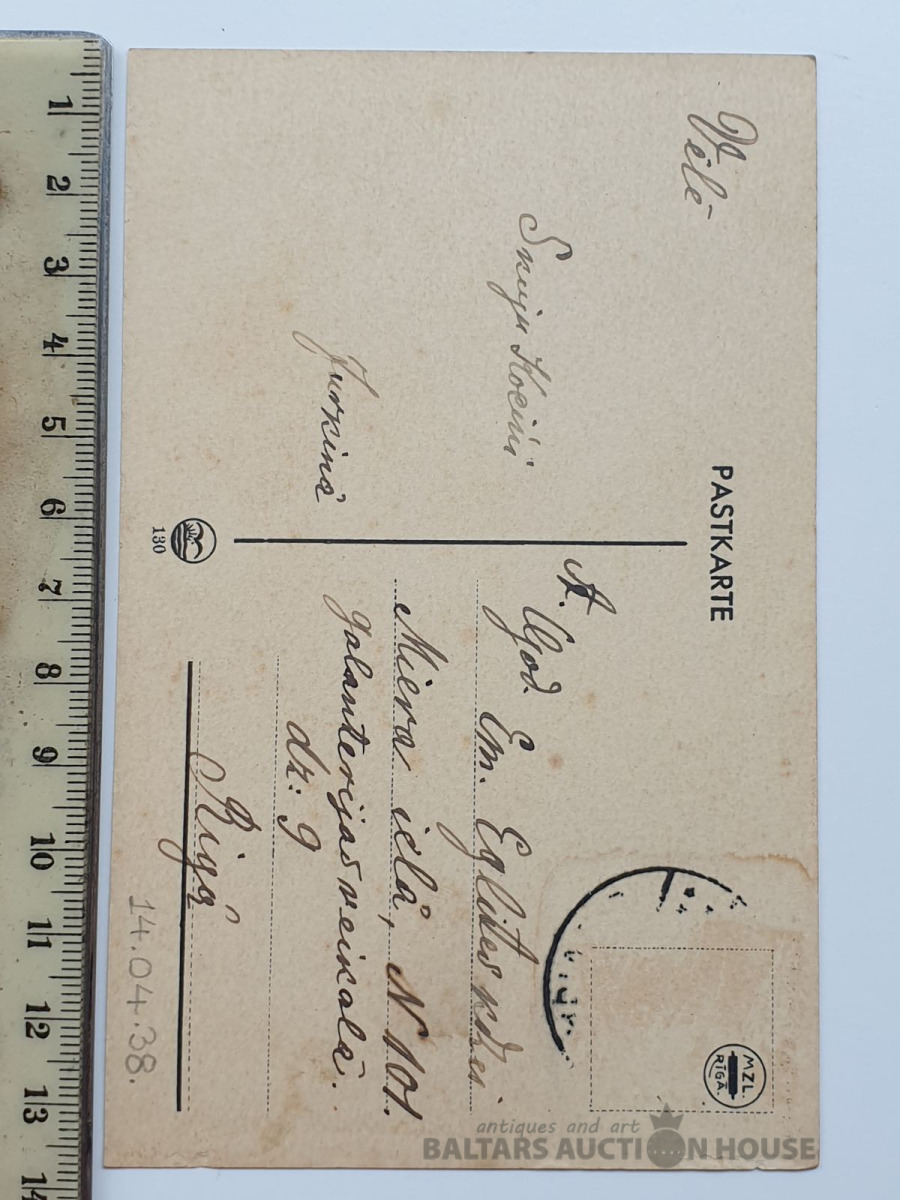 PASTKARTE
Vēlē
Jurciņā
130
A. God. Em. Eglītes kdzei.
Miera ielā, N 101.
galanterijas veikalā.
dz: 9
Rīgā
14.04.38.
MZL.
RĪGĀ.
1 2 3 4 5 6 7 8 9 10 11 12 13 14
antiques and art
BALTARS AUCTION HOUSE